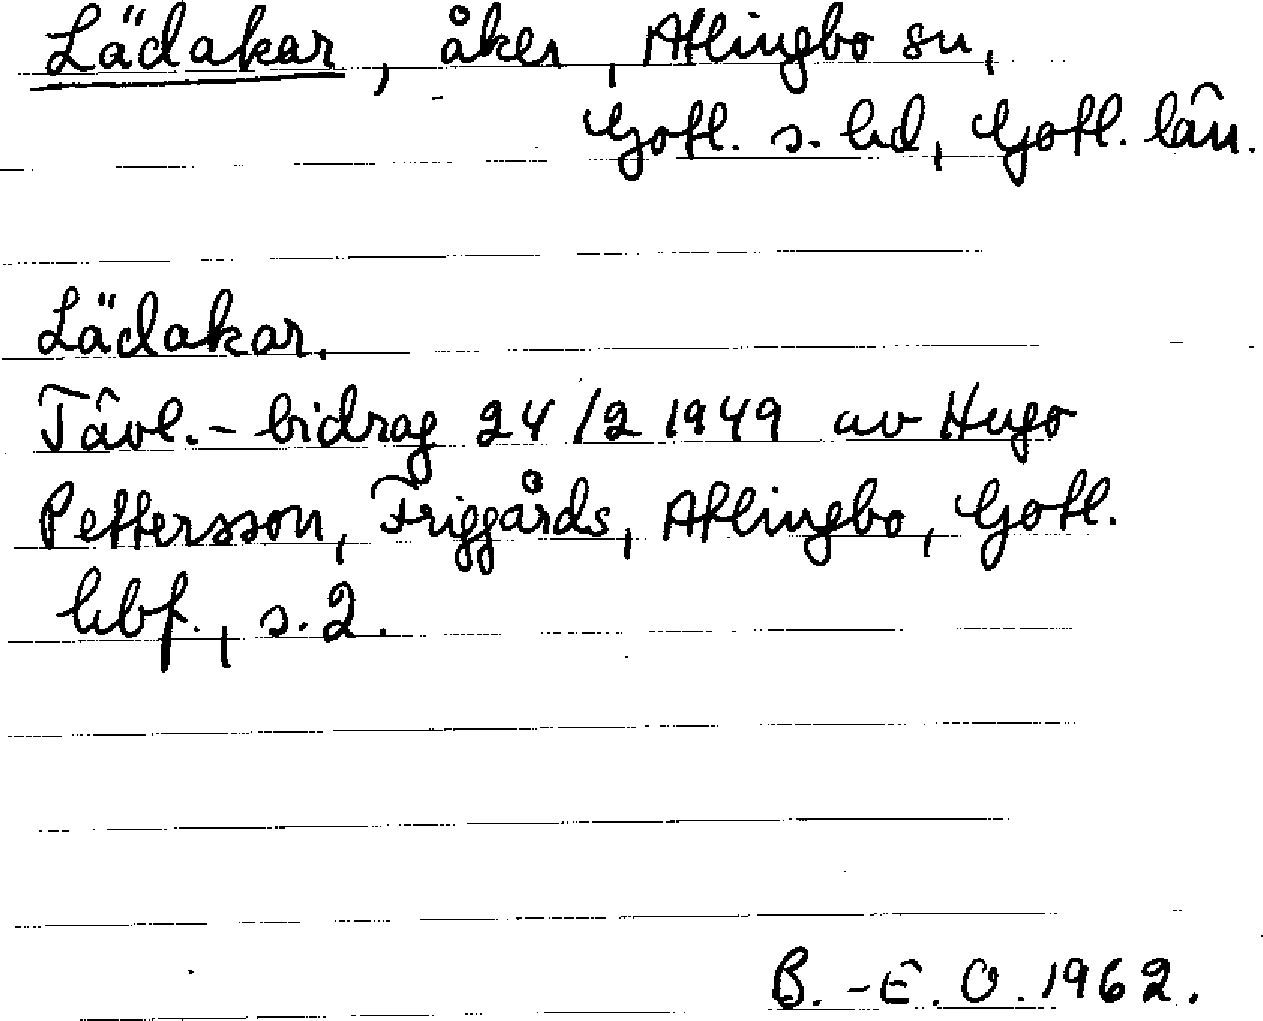 Lädakar, åker, Atlingbo sn,
Gotl. s. hd, Gotl. län.
Lädakar.
Tävl.-bidrag 24/2 1949 av Hugo
Pettersson, Friggårds, Atlingbo, Gotl.
hbf., s. 2.
B.-E. O. 1962.